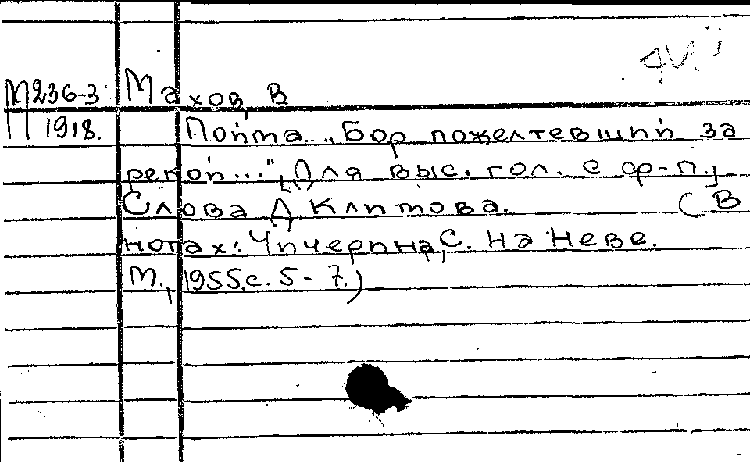 М236-3 Махов, В
П 1918. Пойма. „Бор пожелтевший за
рекой...", [Для выс. гол. с ф-п.]
Слова Д Клитова. (В
нотах: Чичерина, С. На Неве.
М., 1955. с. 5-7.)